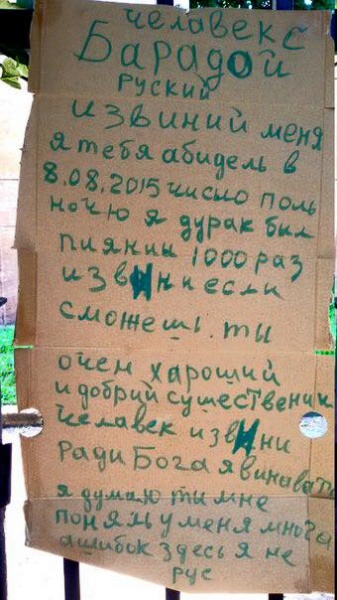 человек с
Барадой
Руский
извиний меня
я тебя абидель в
8.08.2015 число поль
ночю я дурак был
пияний 1000 раз
извинни если
сможешь. ты
очен хароший
и добрий существеник
человек извини
ради Бога я винавать
я думаю ты мне
поняль у меня многа
ашибок здесь я не
рус